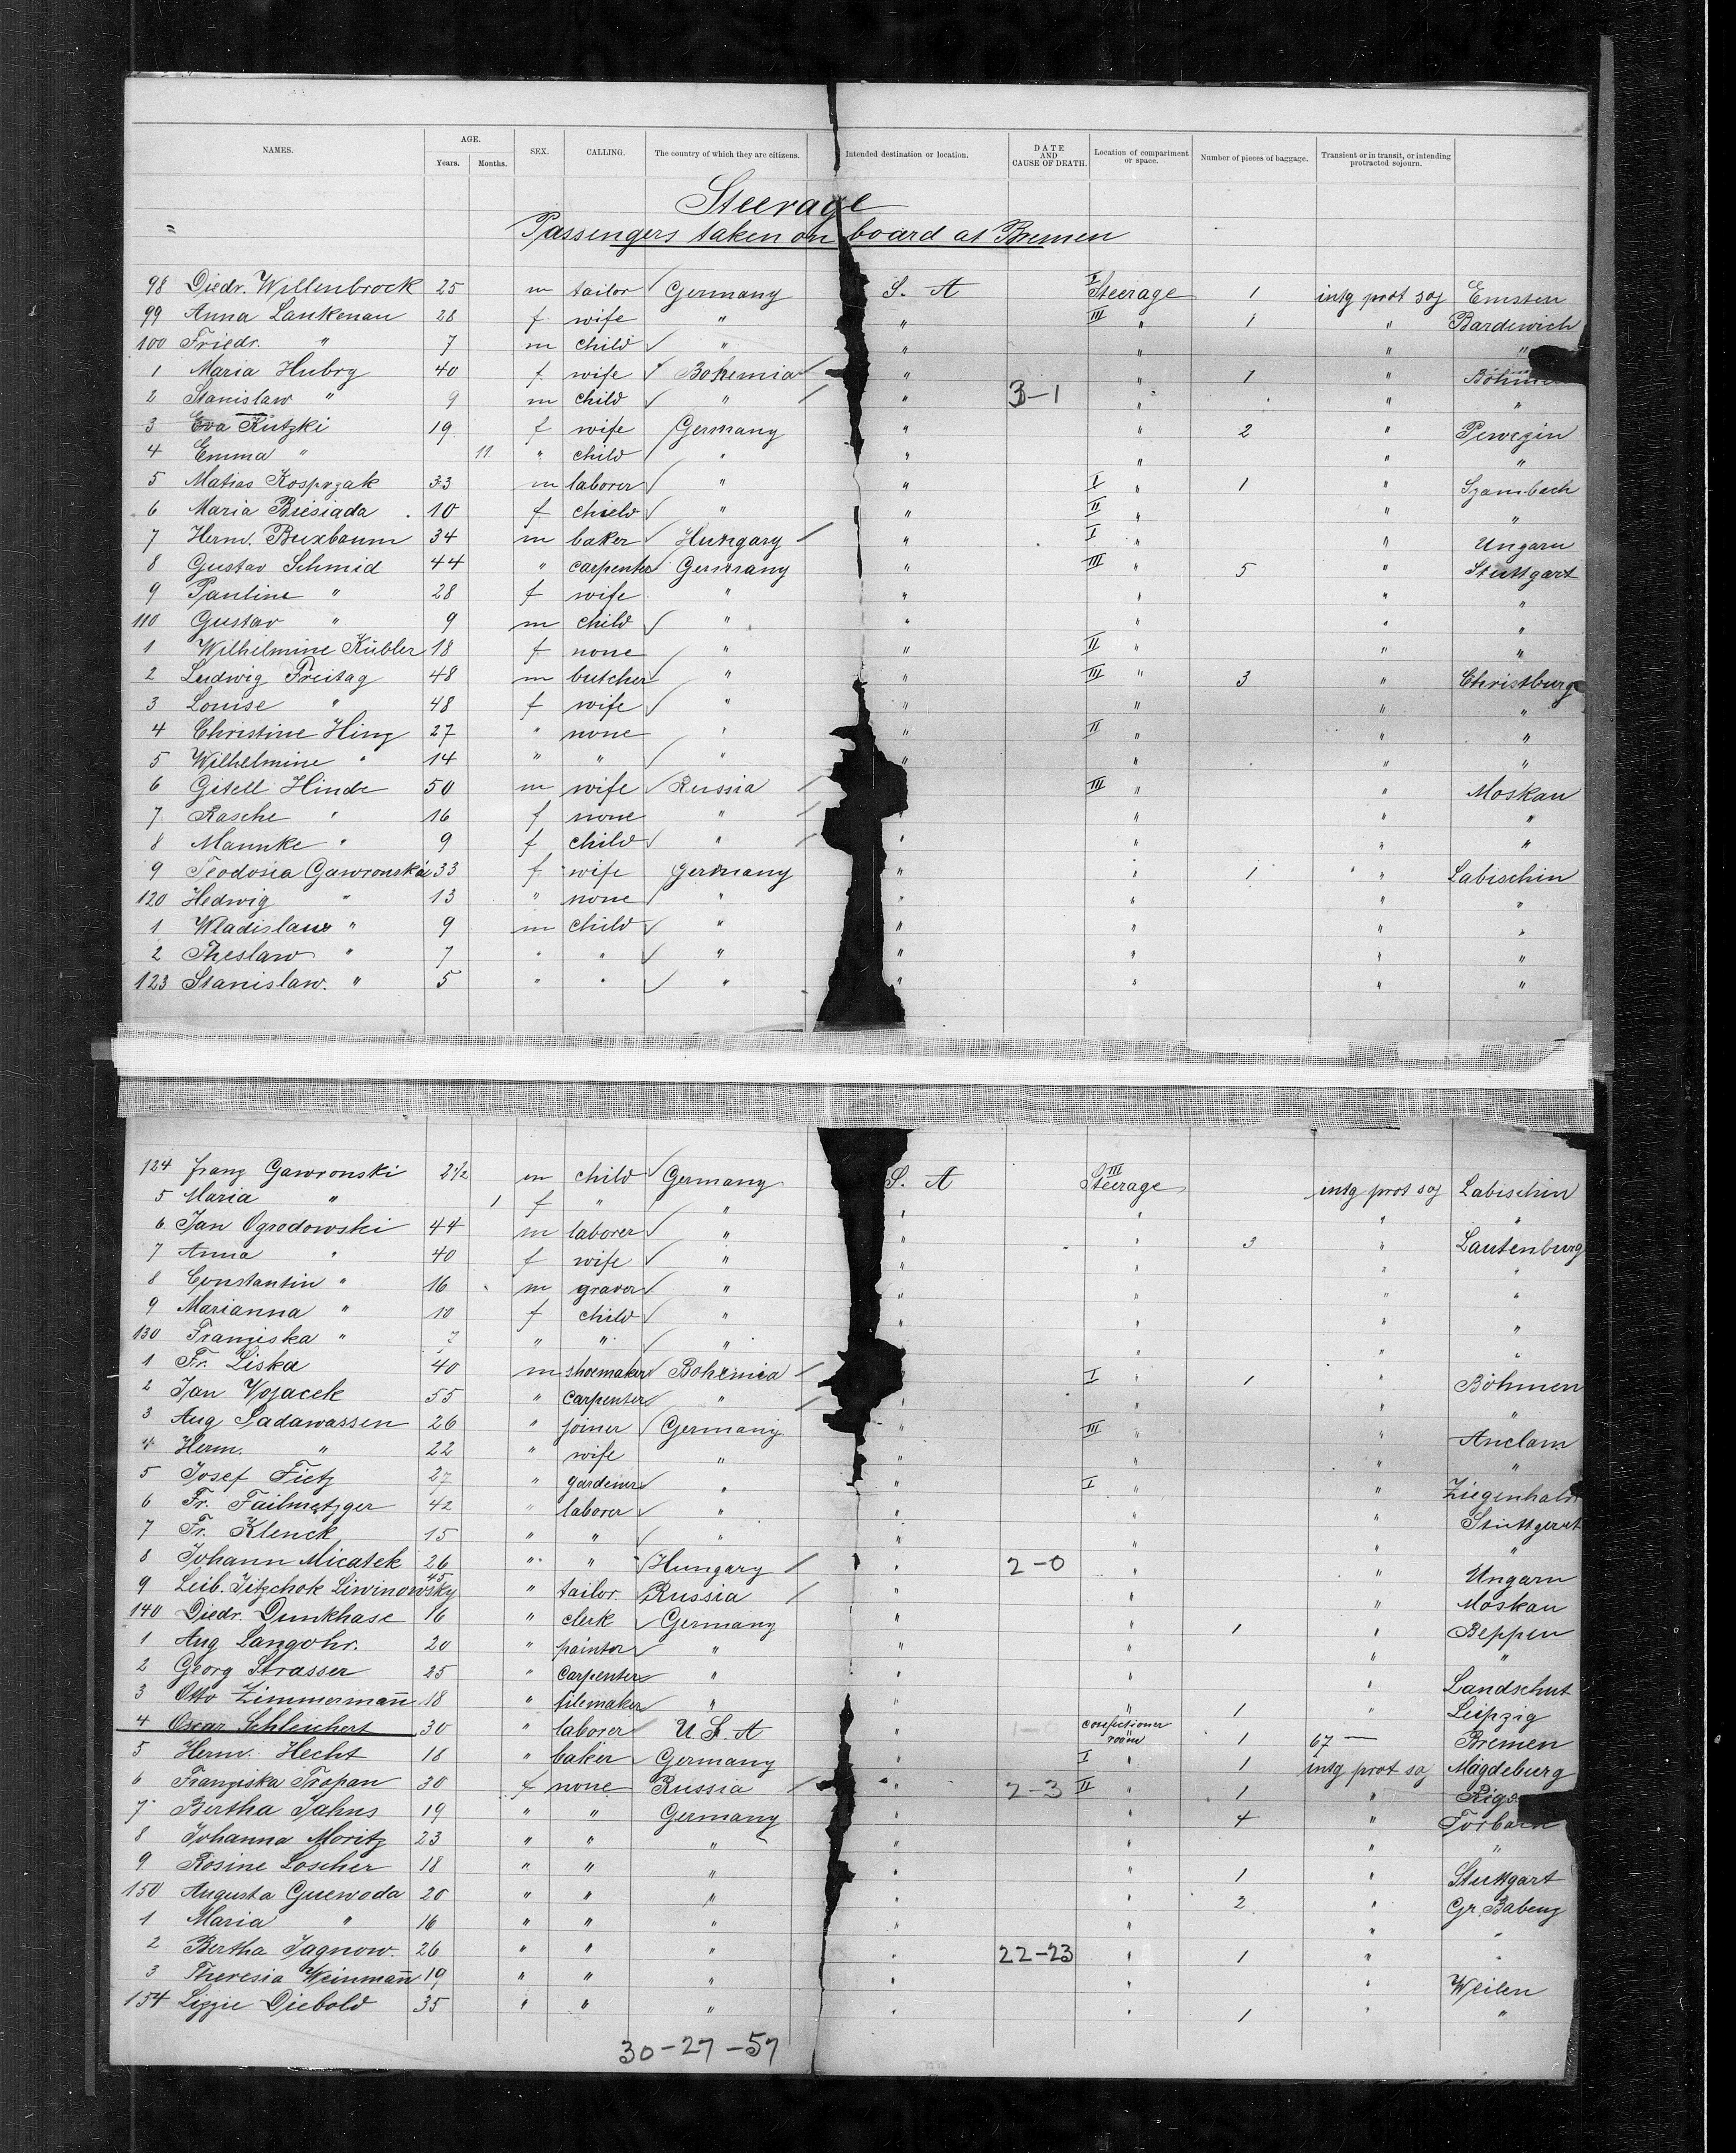 NAMES. AGE. Years. Months. SEX. CALLING. The country of which they are citizens. Intended destination or location. DATE AND CAUSE OF DEATH. Location of compartment or space. Number of pieces of baggage. Transient or in transit, or intending protracted sojourn.
Steerage
Passengers taken on board at Bremen
98 Diedr. Willenbrock 25 m tailor Germany S. A I Steerage 1 intg prot soj Emsten
99 Anna Lankenau 28 f wife " " III " 1 " Bardewich
100 Friedr. " 7 m child " " " " "
1 Maria Hubry 40 f wife Bohemia " " 1 " Böhmen
2 Stanislaw " 9 m child " " 3-1 " " "
3 Eva Kutzki 19 f wife Germany " " 2 " Pewezin
4 Emma " 11 " child " " " " "
5 Matias Kosprzak 33 m laborer " " I " 1 " Szambech
6 Maria Biesiada 10 f child " " II " " "
7 Herm. Buxbaum 34 m baker Hungary " I " " Ungarn
8 Gustav Schmid 44 " carpenter Germany " III " 5 " Stuttgart
9 Pauline " 28 f wife " " " " "
110 Gustav " 9 m child " " " " "
1 Wilhelmine Kübler 18 f none " " II " " "
2 Ludwig Freitag 48 m butcher " " III " 3 " Christburg
3 Louise " 48 f wife " " " " "
4 Christine Hing 27 " none " " II " " "
5 Wilhelmine " 14 " " " " " " "
6 Gitell Hinde 50 m wife Russia III " " Moskau
7 Rasche " 16 f none " " " " "
8 Mannke " 9 f child " " " " "
9 Teodosia Gawronska 33 f wife Germany " " 1 " Labischin
120 Hedwig " 13 " none " " " " "
1 Wladislaw " 9 m child " " " " "
2 Theslaw " 7 " " " " " " "
123 Stanislaw. " 5 " " " " " " "
124 Franz Gawronski 2 1/2 m child Germany S. A III Steerage intg prot soj Labischin
5 Maria " 1 f " " " " " "
6 Jan Ogrodowski 44 m laborer " " " 3 " Lautenburg
7 Anna " 40 f wife " " " " "
8 Constantin " 16 m gravor " " " " "
9 Marianna " 10 f child " " " " "
130 Franziska " 7 " " " " " "
1 Fr. Liska 40 m shoemaker Bohemia I " 1 " Böhmen
2 Jan Vojacek 55 " carpenter " " " " "
3 Aug Padawassen 26 " joiner Germany " III " " Anclam
4 Herm. " 22 " wife " " " " "
5 Josef Tietz 27 " gardener " " I " " Ziegenhals
6 Fr. Failmetzger 42 " laborer " " " " Stuttgart
7 Fr. Klenck 15 " " " " " " "
8 Johann Micatek 26 " " Hungary " 2-0 " " Ungarn
9 Leib. Itzchok Liwinowsky 45 " tailor Russia " " " Moskau
140 Diedr. Dunkhase 16 " clerk Germany " " 1 " Beppen
1 Aug Langohr. 20 " paintor " " " " "
2 Georg Strasser 25 " carpenter " " " " Landschut
3 Otto Zimmermann 18 " filemaker " " " 1 " Leipzig
4 Oscar Schleichert 30 " laborer U S. A confectioner room 1 67 — Bremen
5 Herm. Hecht 18 " baker Germany " I " 1 intg prot soj Magdeburg
6 Franziska Tropan 30 f none Russia " 2-3 II " 1 " Riga
7 Bertha Jahns 19 " " Germany " " 4 " Torbach
8 Johanna Moritz 23 " " " " " " "
9 Rosine Loscher 18 " " " " " 1 " Stuttgart
150 Augusta Guewoda 20 " " " " " 2 " Gr. Babenz
1 Maria " 16 " " " " " " "
2 Bertha Jagnow. 26 " " " " 22-23 " 1 " "
3 Theresia Weinmann 19 " " " " " " Weilen
154 Lizzie Diebold 35 " " " " " 1 " "
30-27-57